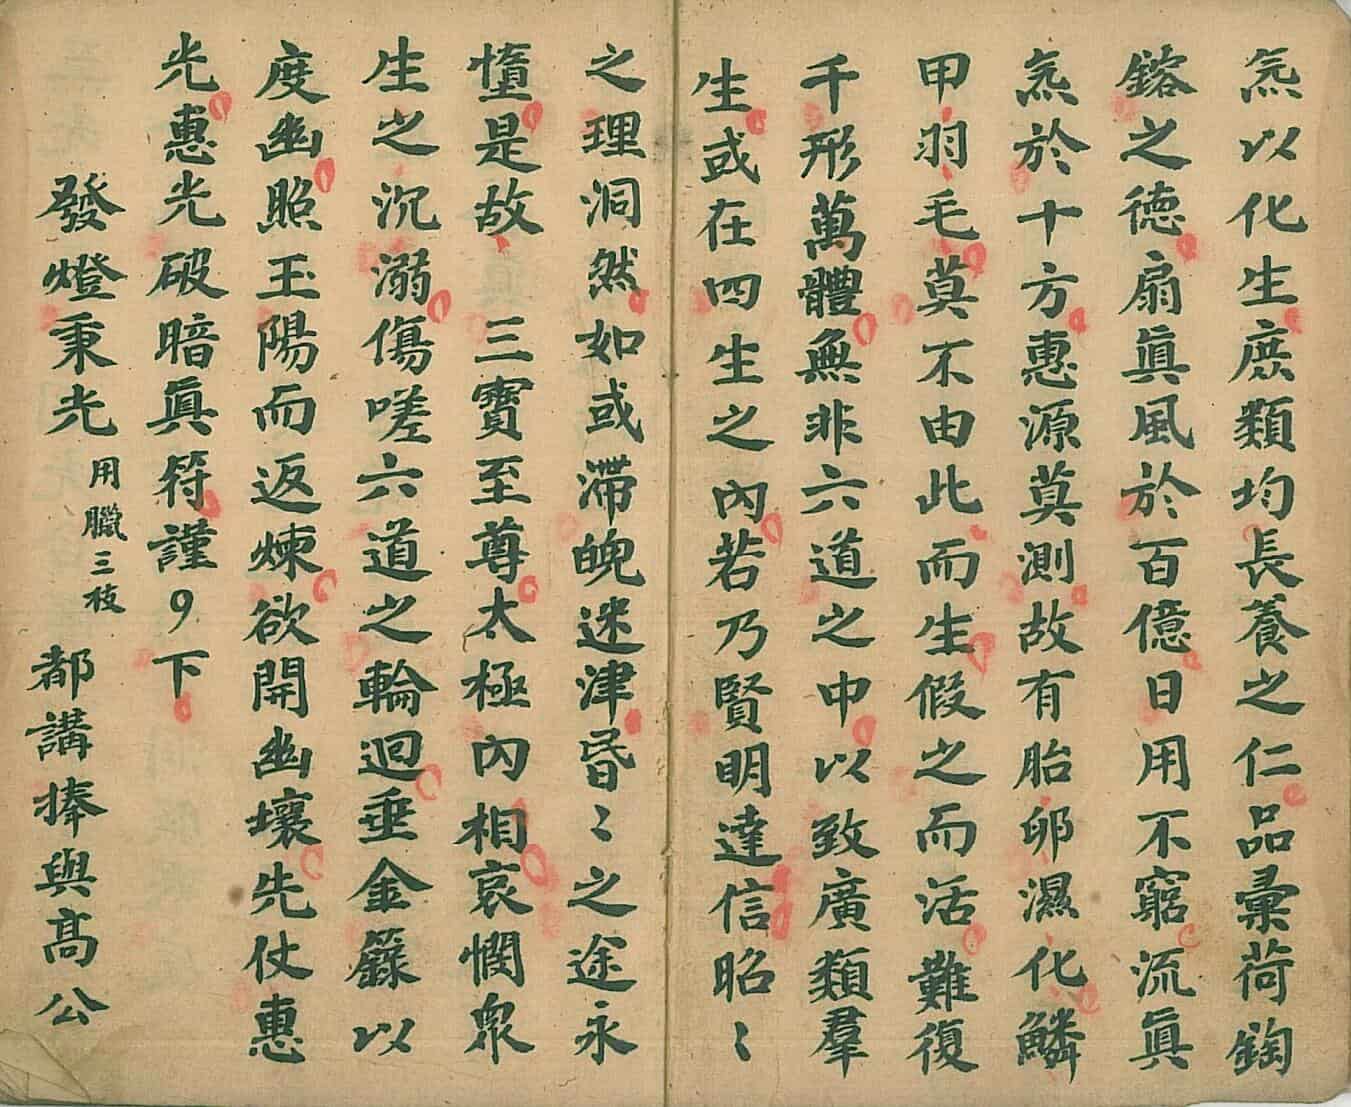 炁以化生庶類均長養之仁品彙荷鈞
鎔之德扇眞風於百億日用不窮流眞
炁於十方惠源莫測故有胎卵濕化鱗
甲羽毛莫不由此而生假之而活難復
千形萬體無非六道之中以致廣類羣
生或在四生之內若乃賢明達信昭〻
之理洞然如或滯魄迷津昏〻之途永
墮是故三寶至尊太極內相哀憫眾
生之沉溺傷嗟六道之輪迴垂金籙以
度幽照玉陽而返煉欲開幽壤先仗惠
光惠光破暗眞符謹9下
發燈秉光用臘三枝都講捧與高公